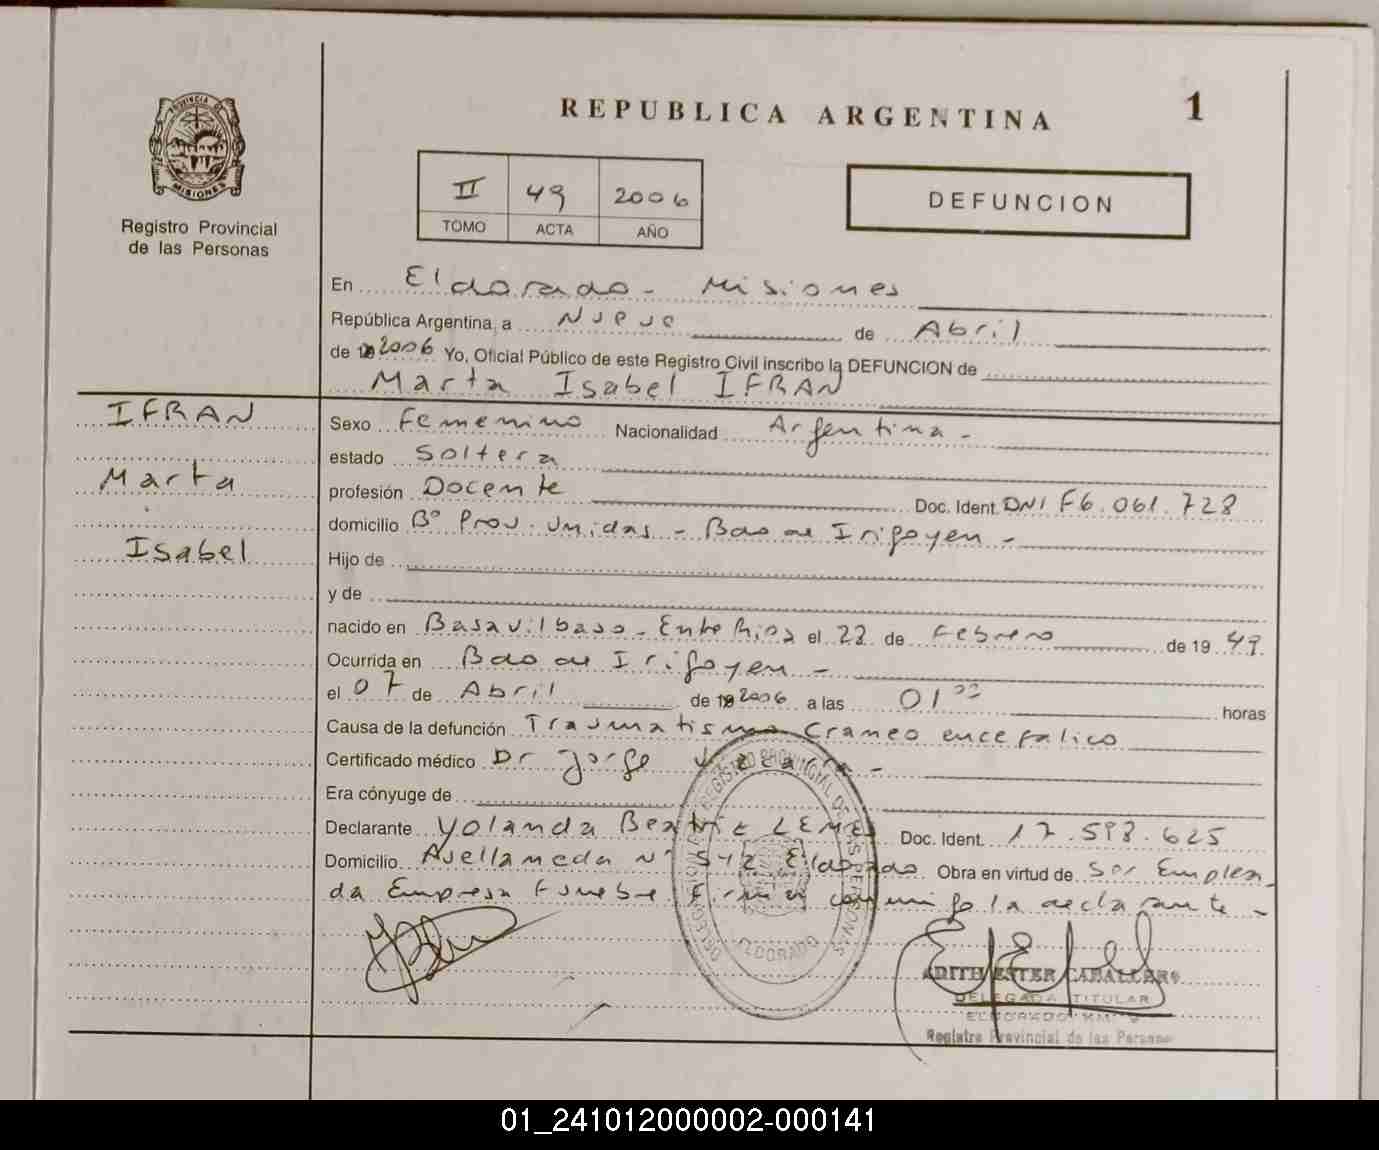 REPUBLICA ARGENTINA
1
PROVINCIA DE
MISIONES
Registro Provincial
de las Personas
II 49 2006
TOMO ACTA AÑO
DEFUNCION
En Eldorado - Misiones
República Argentina, a Nueve de Abril
de 2006 Yo, Oficial Público de este Registro Civil inscribo la DEFUNCION de
Marta Isabel IFRAN
IFRAN
Marta
Isabel
Sexo Femenino Nacionalidad Argentina -
estado Soltera
profesión Docente Doc. Ident. DNI F6.061.728
domicilio Bº Prov. Unidas - Bdo de Irigoyen -
Hijo de
y de
nacido en Basavilbaso - Entre Rios el 22 de Febrero de 19 49.
Ocurrida en Bdo de Irigoyen -
el 07 de Abril de 2006 a las 01 00 horas
Causa de la defunción Traumatismo Craneo encefalico
Certificado médico Dr Jorge
Era cónyuge de
Declarante Yolanda Beatriz LEMES Doc. Ident. 17.593.625
Domicilio Avellaneda Nº 542 Eldorado Obra en virtud de Ser Emplea
da Empresa Funebre Firma conmigo la declarante -
DELEGACION REGISTRO PROVINCIAL DE LAS PERSONAS
ELDORADO
ADITH ESTER CABALLERO
DELEGADA TITULAR
ELDORADO KM 9
Registro Provincial de las Personas
01_241012000002-000141